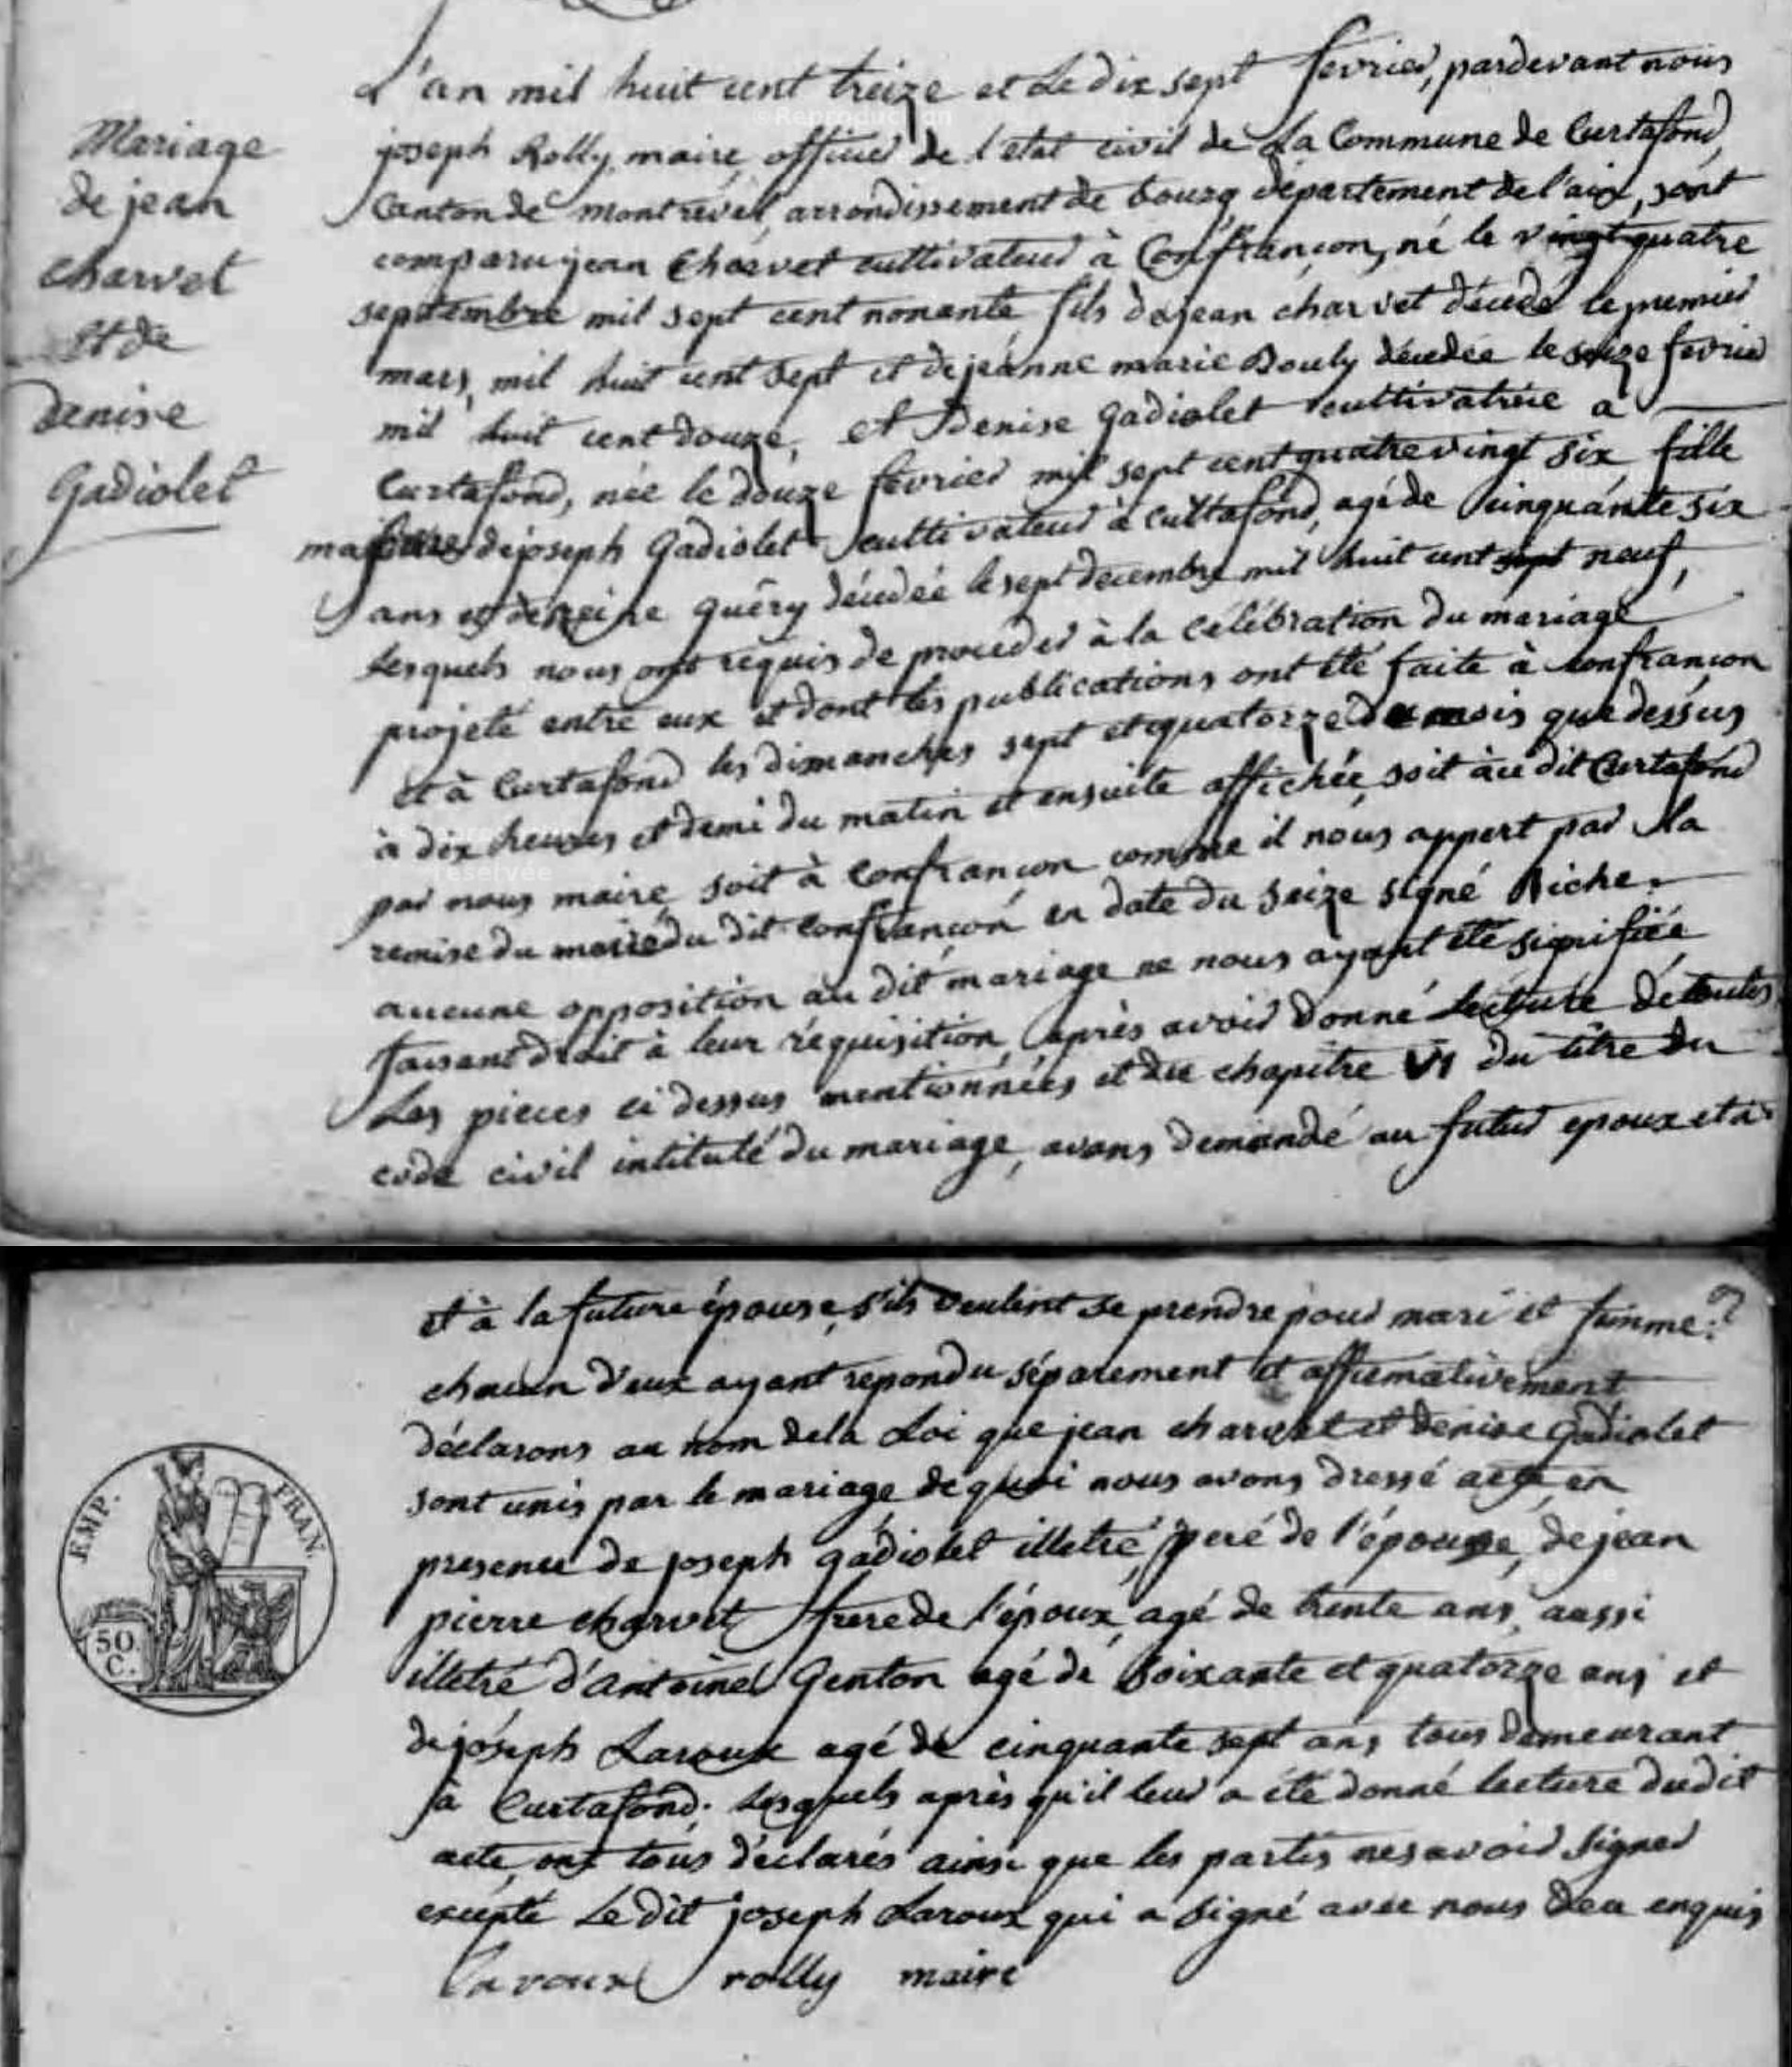 Mariage
de jean
charvet
et de
denise
Gadiolet
L'an mil huit cent treize et Le dix sept fevrier, pardevant nous
joseph Rolly, maire, officier de l'etat civil de La Commune de Curtafond,
Canton de montrevel, arrondissement de bourg département de l'ain, sont
comparu jean Charvet cultivateur à Confrançon, né le vingt quatre
septembre mil sept cent nonante fils de jean charvet décédé le premier
mars, mil huit cent sept et de jeanne marie Bouly décédée le seize fevrier
mil huit cent douze, et Denise Gadiolet cultivatrice a
Curtafond, née le douze fevrier mil sept cent quatre vingt six fille
majeure de joseph Gadiolet cultivateur à Curtafond, agé de Cinquante six
ans et de reine Guéry décédée le sept decembre mil huit cent sept neuf,
Lesquels nous ont requis de proceder à la célébration du mariage
projeté entre eux et dont les publications ont été faite à confrançon
et à Curtafond les dimanches sept et quatorze du mois que dessus
à dix heures et demi du matin et ensuite affichée, soit au dit Curtafond
par nous maire soit à Confrançon comme il nous appert par la
remise du maire du dit confrançon en date du seize signé Riche.
aucune opposition au dit mariage ne nous ayant été signifiée
faisant droit à leur réquisition, après avoir donné Lecture de toutes
Les pieces ci dessus mentionnées et du chapitre VI du titre du
code civil intitulé du mariage, avons demandé au futur epoux et à
EMP. FRAN.
50. C.
et à la future épouse, s'ils veulent se prendre pour mari et femme:
chacun d'eux ayant repondu séparement et affirmativement
déclarons au nom de la Loi que jean charvet et denise Gadiolet
sont unis par le mariage de quoi nous avons dressé acte, en
presence de joseph gadiolet illetré, peré de l'épouse, de jean
pierre charvet, frere de l'époux, agé de trente ans, aussi
illetré d'Antoine Genton agé de Soixante et quatorze ans et
de joseph Laroux agé de cinquante sept ans tous demeurant
à Curtafond. Lesquels après qu'il leur a été donné lecture dudit
acte, ont tous déclarés ainsi que les partis ne savoir signer
excepté Le dit joseph Laroux qui a signé avec nous de ce enquis
Laroux rolly maire